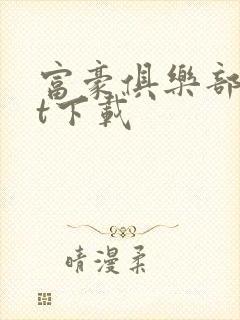 富豪俱樂部
t下載
晴漫柔